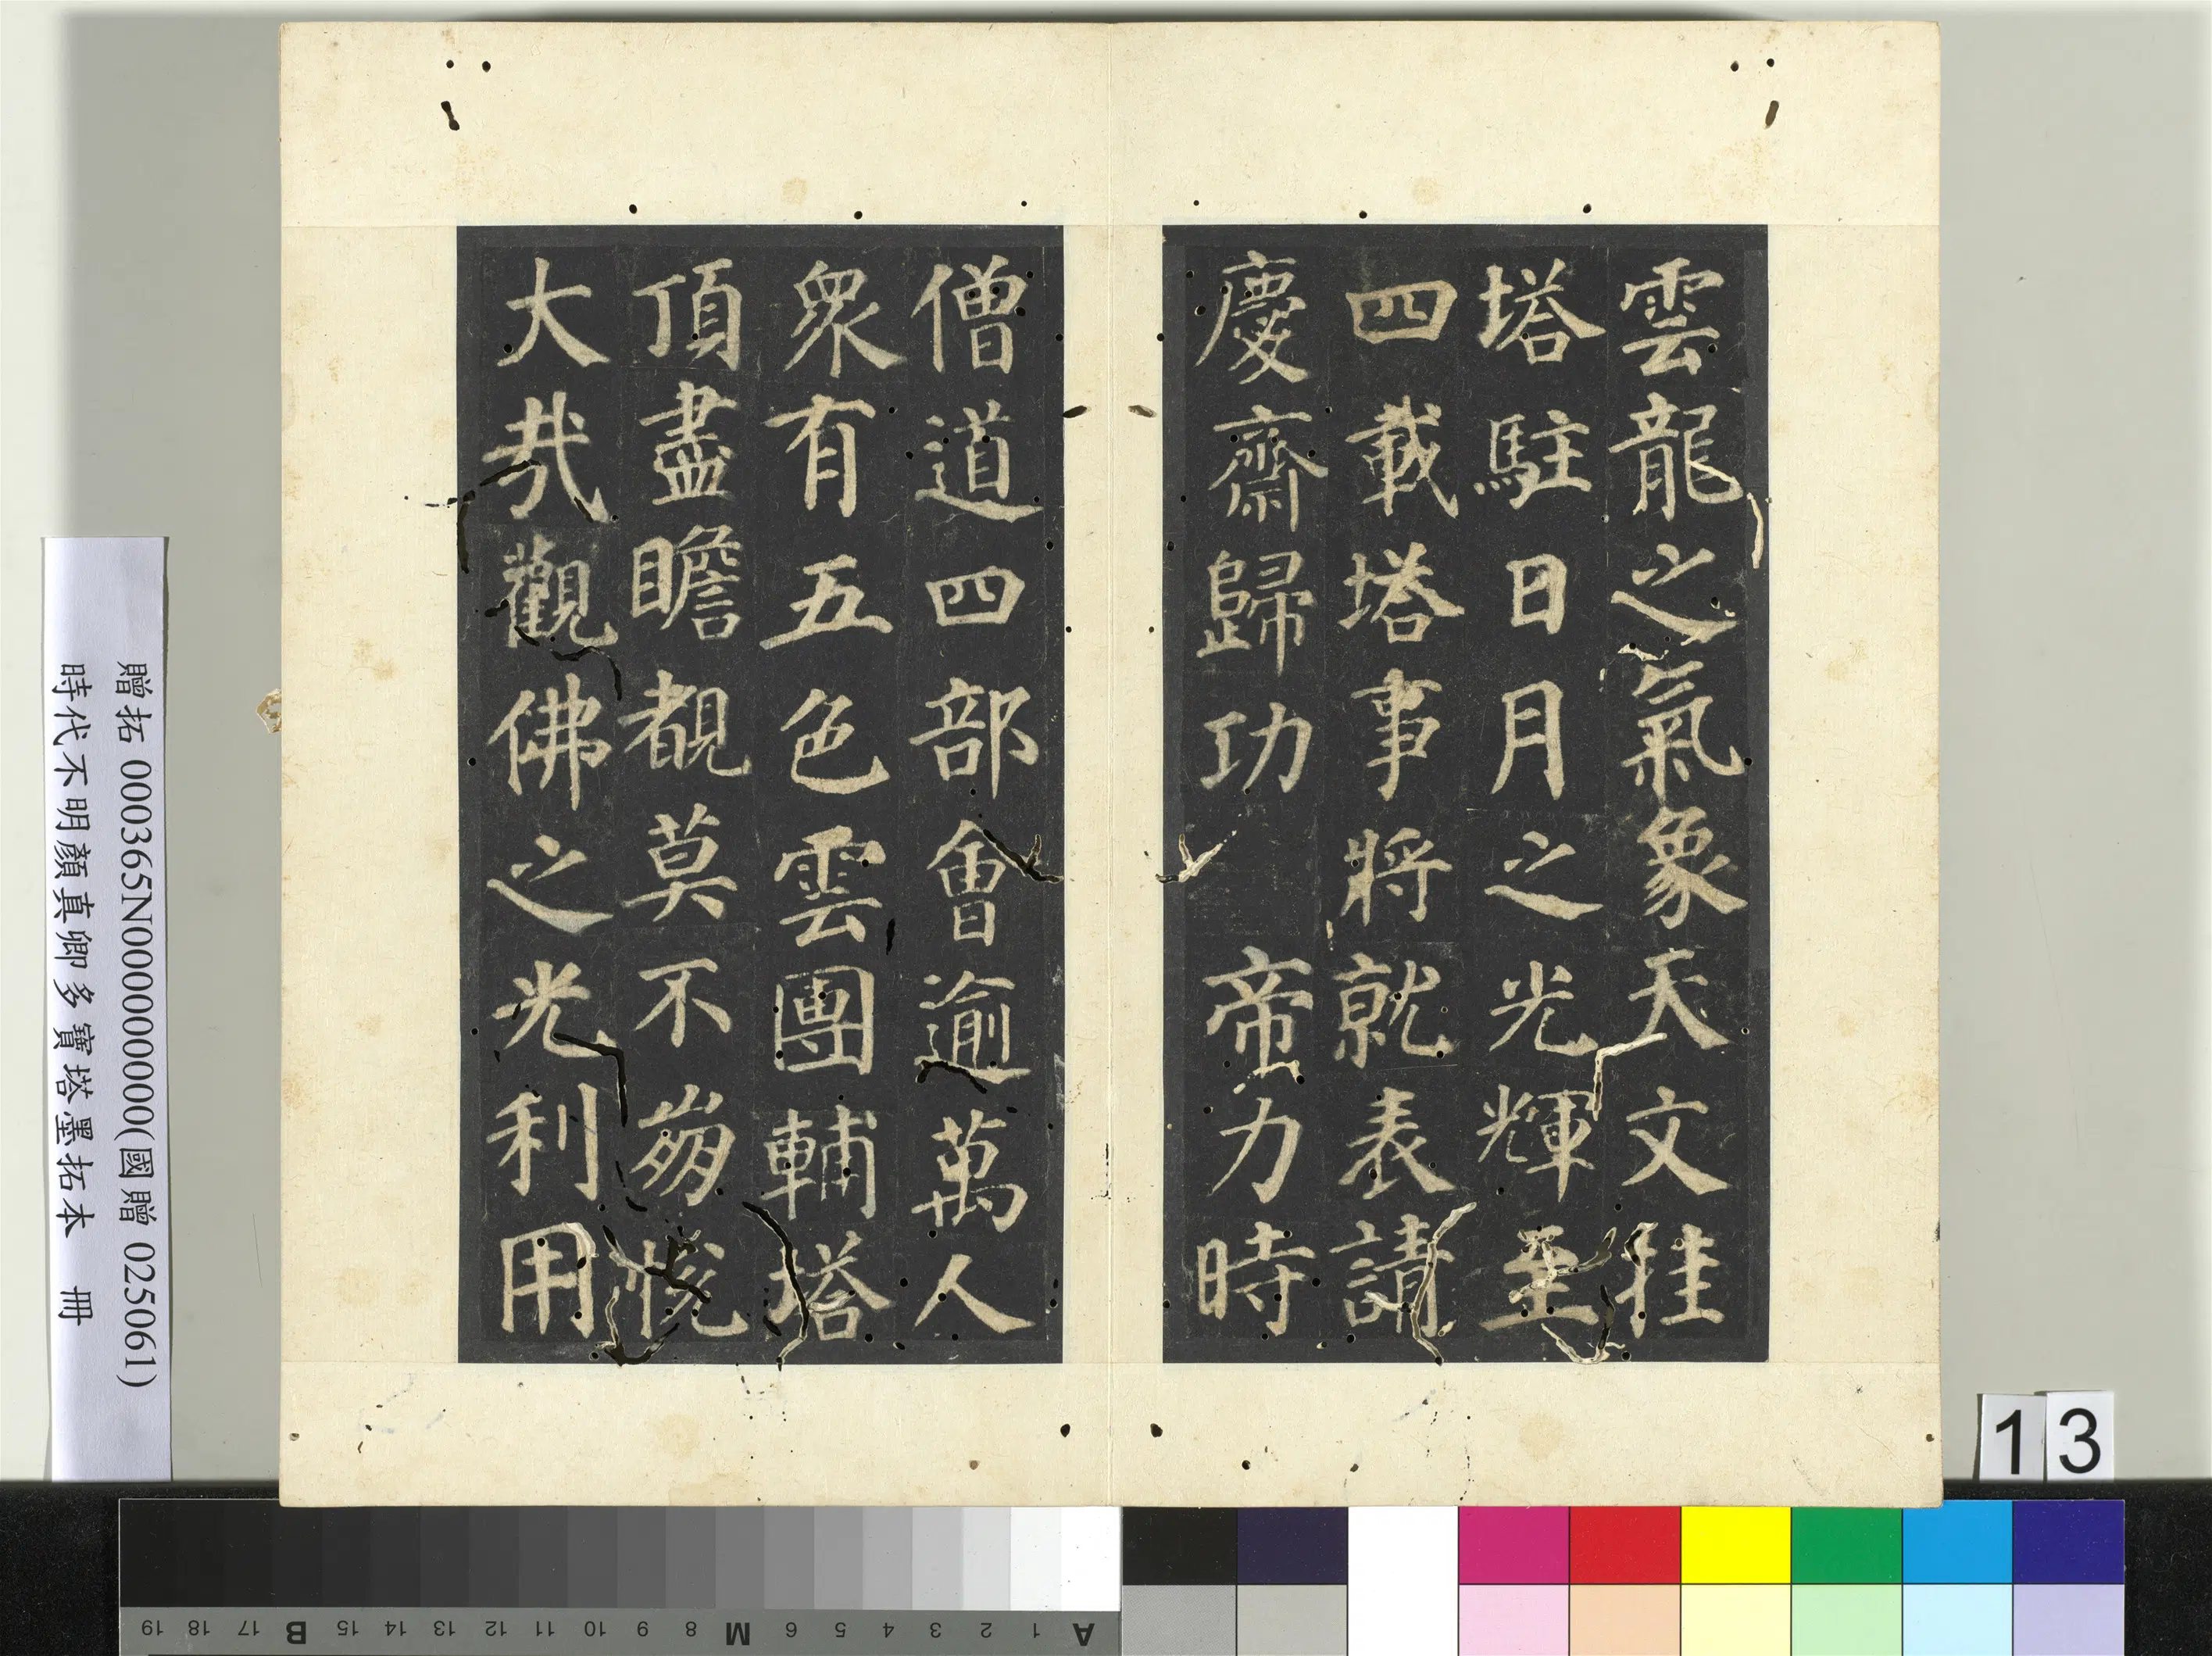 雲龍之氣象天文挂
塔駐日月之光輝至
四載塔事將就表請
慶齋歸功 帝力時
僧道四部會逾萬人
眾有五色雲團輔塔
頂盡瞻覩莫不崩悅
大哉觀佛之光利用
贈拓 000365N000000000(國贈 025061)
時代不明顏真卿多寶塔墨拓本 冊
13
A 1 2 3 4 5 6 M 8 9 10 11 12 13 14 15 B 17 18 19